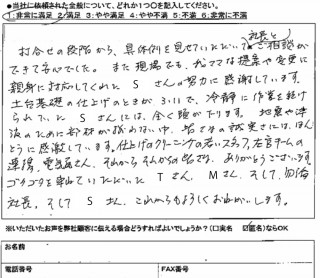 ●当社に依頼された全般について、どれか1つ○を記入してください。
1:非常に満足 2:満足 3:やや満足 4:やや不満 5:不満 6:非常に不満
社長と
お合せの段階から、具体例を見せていただいてご相談が
できて安心でした。また現場でも、がてな提案や変更に
親身に対応してくれた Sさんの努力に感謝しています。
土台基礎の仕上げのときが3.11で、冷静に作業を続け
られていた Sさんには、全く頭が下ります。地震や津
波のために部材が揃わない中、皆さまの誠実さには、ほん
とうに感謝しています。仕上げのクリーニングの若いスタッフ、左官チームの
連携、電気屋さん、それから、それからの皆さま、ありがとうございます。
ゴタゴタを束ねていただいた Tさん、Mさん、そして、
社長。そして Sさん、これからもよろしくお願いします。
※いただいたお声を弊社顧客に伝える場合どうすればよいでしょうか? 口実名 ☑匿名ならOK
お名前
電話番号 FAX番号